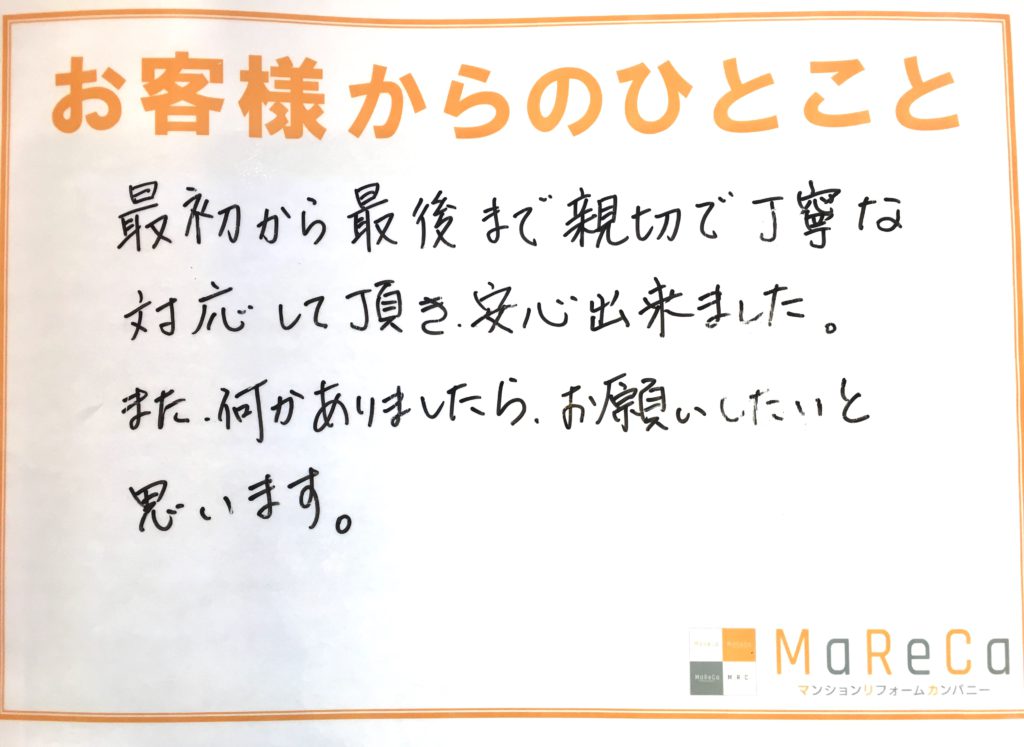 お客様からのひとこと
最初から最後まで親切で丁寧な
対応して頂き、安心出来ました。
また、何かありましたら、お願いしたいと
思います。
MaReCa
MaReCa MRC
MaReCa
マンションリフォームカンパニー